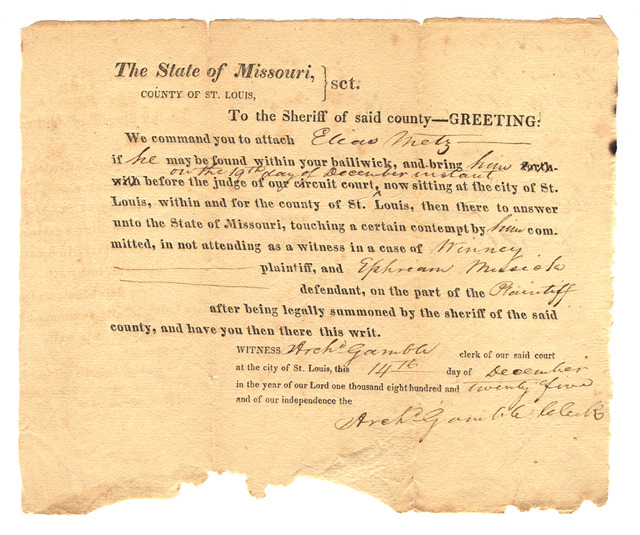 The State of Missouri,
COUNTY OF ST. LOUIS,
} sct.
To the Sheriff of said county—GREETING:
We command you to attach Elias Metz
if he may be found within your bailiwick, and bring him forth-
on the 19th day of December instant
with before the judge of our circuit court, now sitting at the city of St.
Louis, within and for the county of St. Louis, then there to answer
unto the State of Missouri, touching a certain contempt by him com-
mitted, in not attending as a witness in a case of Winney
plaintiff, and Ephream Musick
defendant, on the part of the Plaintiff
after being legally summoned by the sheriff of the said
county, and have you then there this writ.
WITNESS Archd. Gamble clerk of our said court
at the city of St. Louis, this 14th day of December
in the year of our Lord one thousand eight hundred and twenty five
and of our independence the
Archd. Gamble Clerk